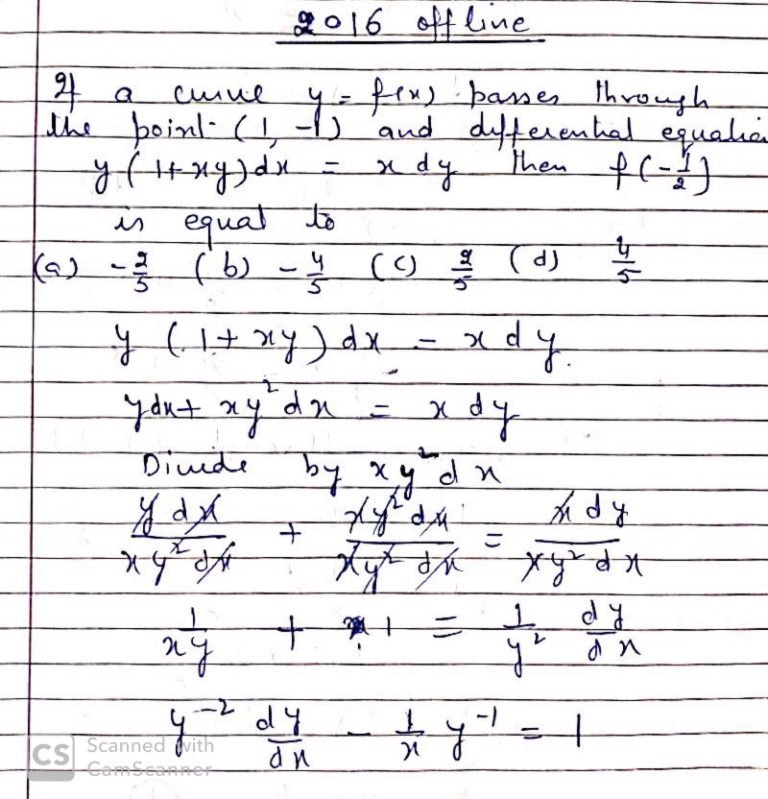 2016 offline
If a curve y = f(x) passes through
the point (1, -1) and differential equation
y(1+xy)dx = x dy then f(-1/2)
is equal to
(a) -2/5 (b) -4/5 (c) 2/5 (d) 4/5
y (1+xy) dx = x dy.
ydx + xy²dx = x dy
Divide by xy²dx
y dx/xy²dx + xy²dx/xy²dx = x dy/xy²dx
1/xy + 1 = 1/y² dy/dx
y⁻² dy/dx - 1/x y⁻¹ = 1
CS Scanned with
CamScanner